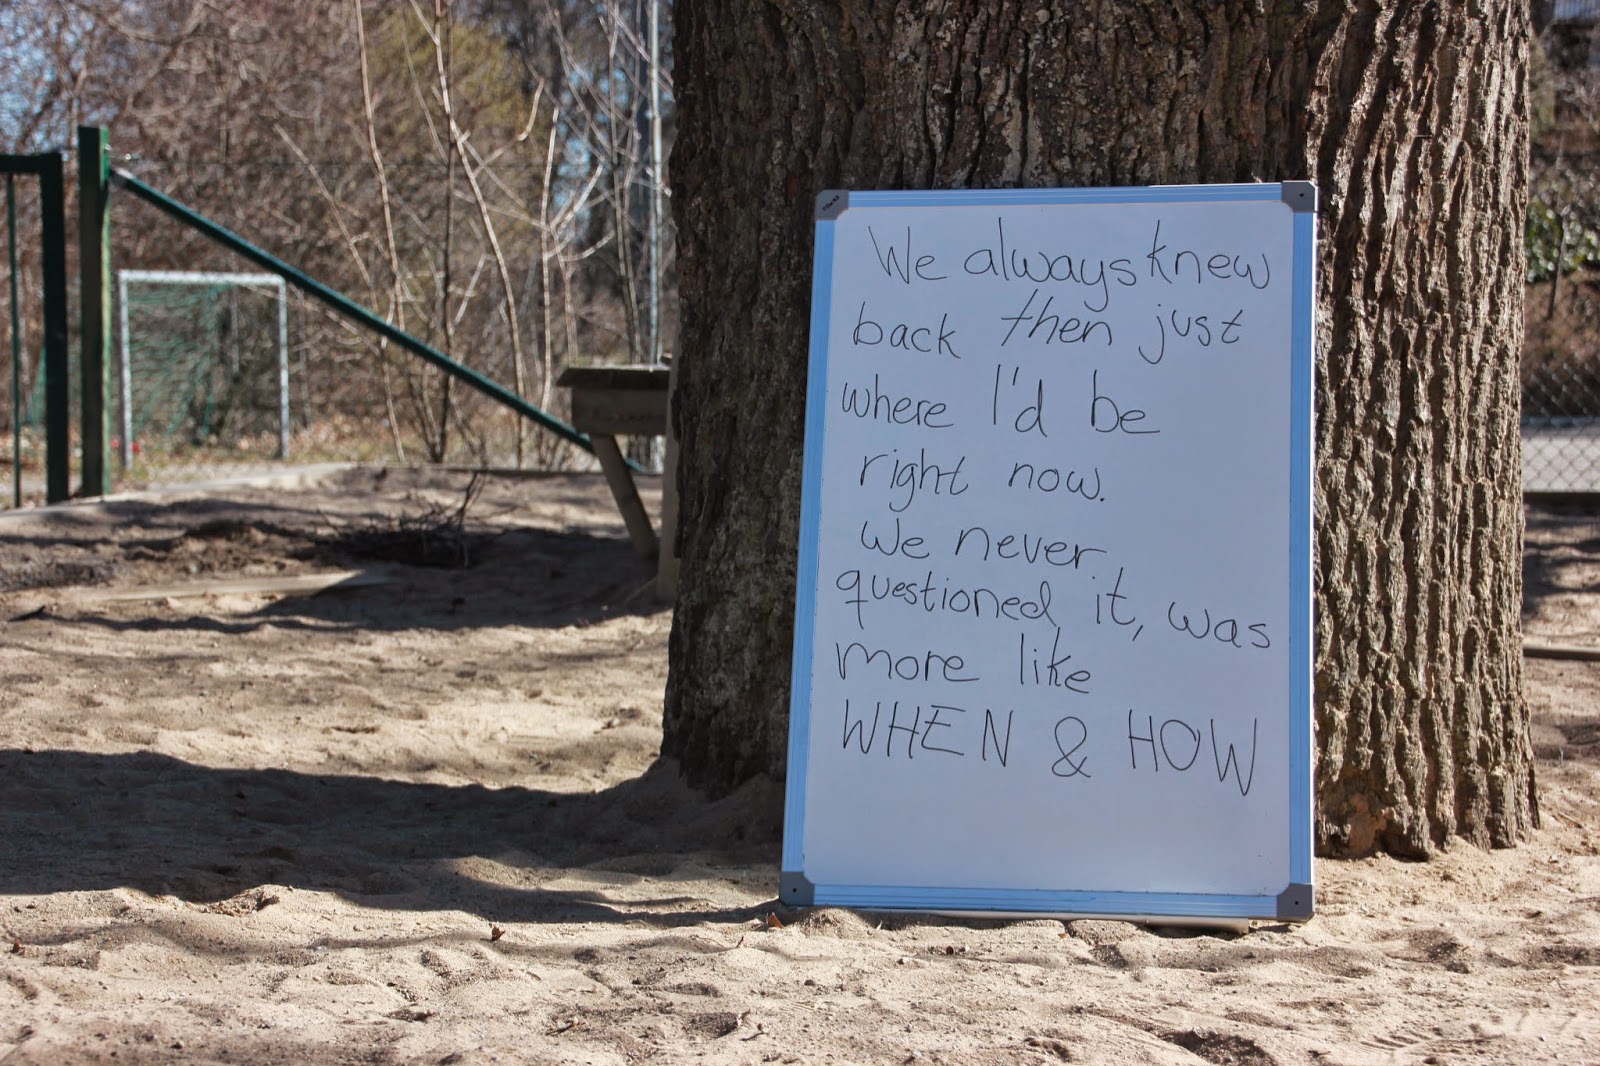 We always knew
back then just
where I'd be
right now.
We never
questioned it, was
more like
WHEN & HOW